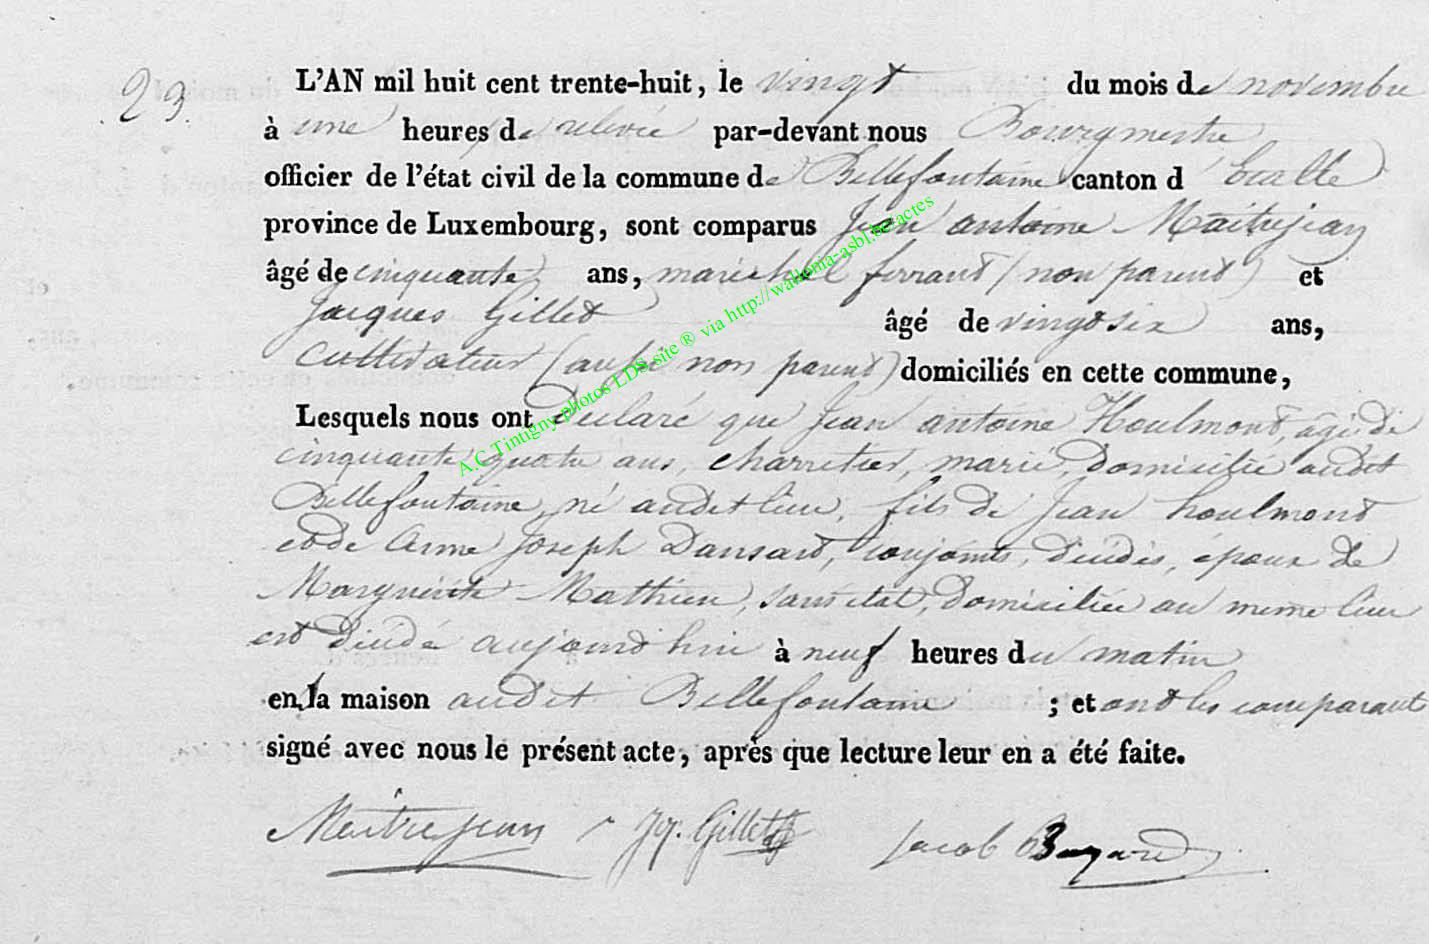 23.
L'AN mil huit cent trente-huit, le vingt du mois de novembre
à une heures de relevée par-devant nous Bourgmestre
officier de l'état civil de la commune de Bellefontaine canton d' Etalle
province de Luxembourg, sont comparus Jean antoine Maitrejean
âgé de cinquante ans, maréchal ferrant (non parent) et
Jacques Gillet âgé de vingt six ans,
cultivateur (aussi non parent) domiciliés en cette commune,
Lesquels nous ont déclaré que Jean antoine Houlmont, âgé de
cinquante quatre ans, charretier, marié, domicilié audit
Bellefontaine, né audit lieu, fils de Jean houlmont
et de Anne Joseph Dansart, conjoints, décédés, époux de
Marguerite Mathieu, sans état, domiciliée au même lieu
est décédé aujourd'hui à neuf heures du matin
en la maison audit Bellefontaine ; et ont les comparants
signé avec nous le présent acte, après que lecture leur en a été faite.
Maitrejean Jq. Gillet Jacob
A.C Tintigny photos LDS site ® via http://wallonia-asbl.be/actes